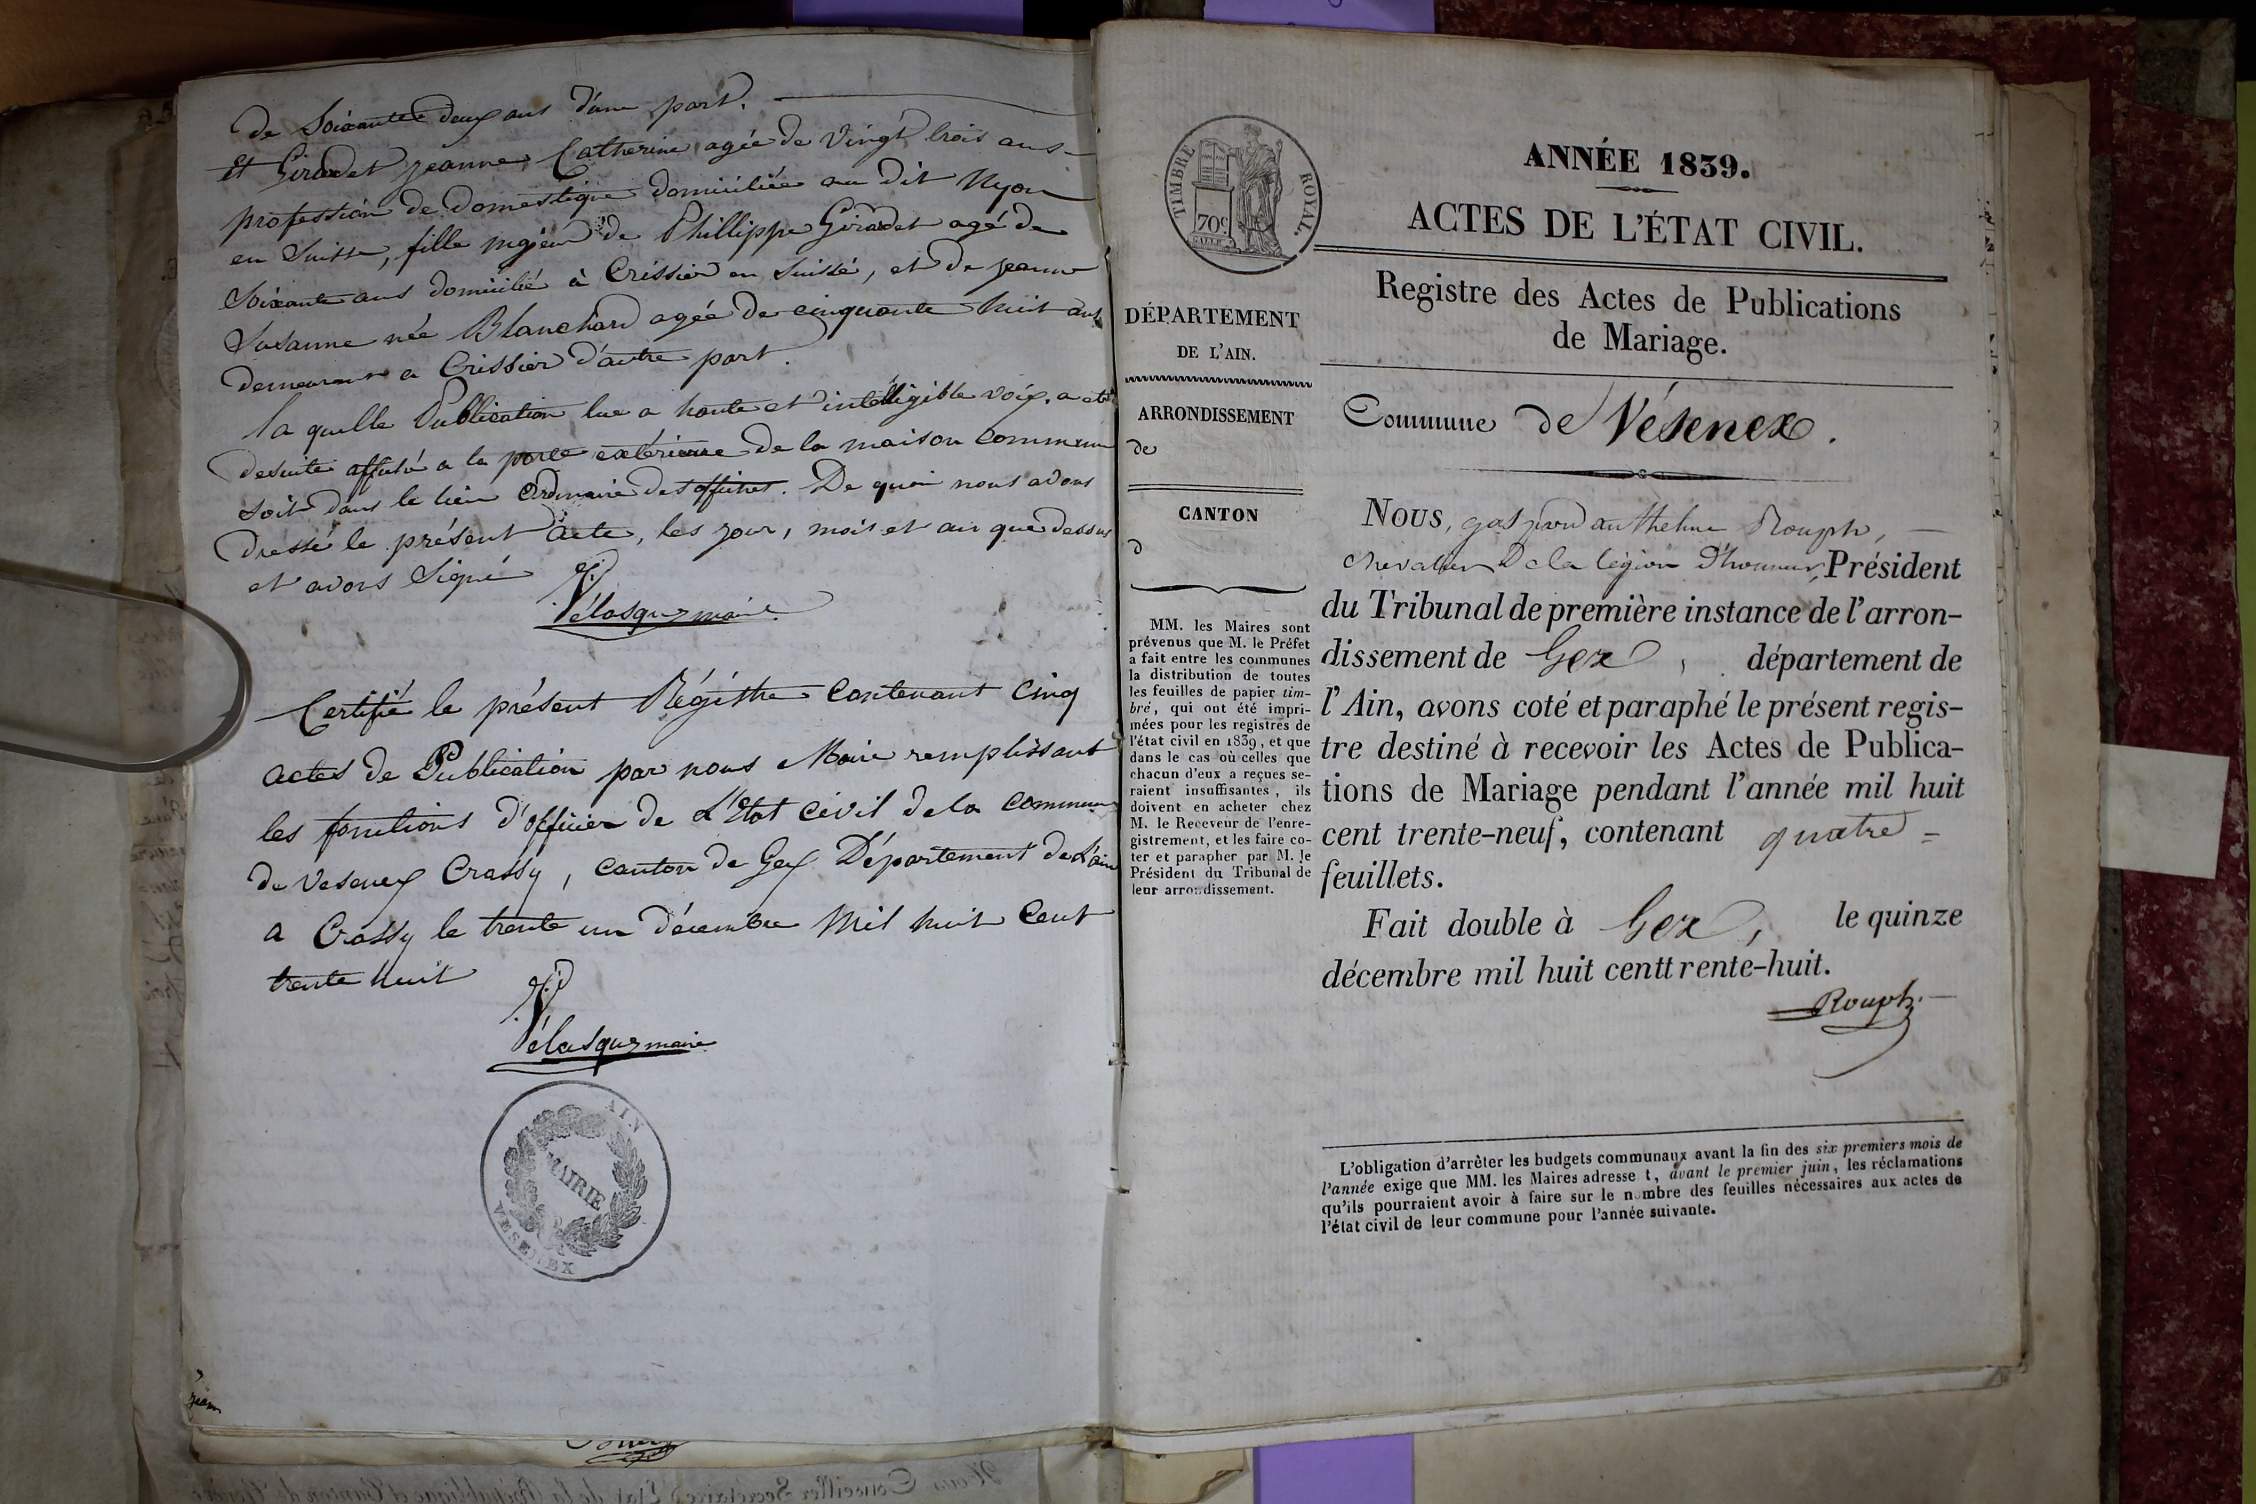 de Soixante deux ans d'une part.
Et Giradet jeanne Catherine agée de vingt trois ans
profession de domestique domiciliée au dit Nyon
en Suisse, fille mgieur de Phillippe Giradet agé de
Soixante ans domicilié à Crissier en Suisse, et de jeanne
Susanne née Blanchard agée de cinquante huit ans
demeurant a Crissier d'autre part.
la quelle Publication lue a haute et intelligible voix, a eté
desuite affiché a la porte extérieure de la maison commune
soit dans le lieu Ordinaire des affiches. De quoi nous avons
dressé le présent acte, les jour, mois et an que dessus
et avons signé
Vélasquz maire
Certifié le présent Régistre Contenant Cinq
actes de Publication par nous Maire remplissant
les fonctions d'officier de L'Etat civil de la commune
de Vesenex Crassy, canton de Gex Département de L'ain
a Crassy le trente un décembre Mil huit Cent
trente huit
Vélasquz maire
AIN
MAIRIE
VESENEX
jean
TIMBRE ROYAL.
70c
ANNÉE 1839.
ACTES DE L'ÉTAT CIVIL.
Registre des Actes de Publications
de Mariage.
DÉPARTEMENT
DE L'AIN.
ARRONDISSEMENT
de
CANTON
d
MM. les Maires sont
prévenus que M. le Préfet
a fait entre les communes
la distribution de toutes
les feuilles de papier tim-
bré, qui ont été impri-
mées pour les registres de
l'état civil en 1839, et que
dans le cas où celles que
chacun d'eux a reçues se-
raient insuffisantes, ils
doivent en acheter chez
M. le Receveur de l'enre-
gistrement, et les faire co-
ter et parapher par M. le
Président du Tribunal de
leur arrondissement.
Commune de Vésenex.
Nous, gaspard anthelme Rouph,
chevalier De la légion D'honneur, Président
du Tribunal de première instance de l'arron-
dissement de Gex, département de
l'Ain, avons coté et paraphé le présent regis-
tre destiné à recevoir les Actes de Publica-
tions de Mariage pendant l'année mil huit
cent trente-neuf, contenant quatre =
feuillets.
Fait double à Gex, le quinze
décembre mil huit centt rente-huit.
Rouph.
L'obligation d'arrêter les budgets communaux avant la fin des six premiers mois de
l'année exige que MM. les Maires adresse t, avant le premier juin, les réclamations
qu'ils pourraient avoir à faire sur le nombre des feuilles nécessaires aux actes de
l'état civil de leur commune pour l'année suivante.